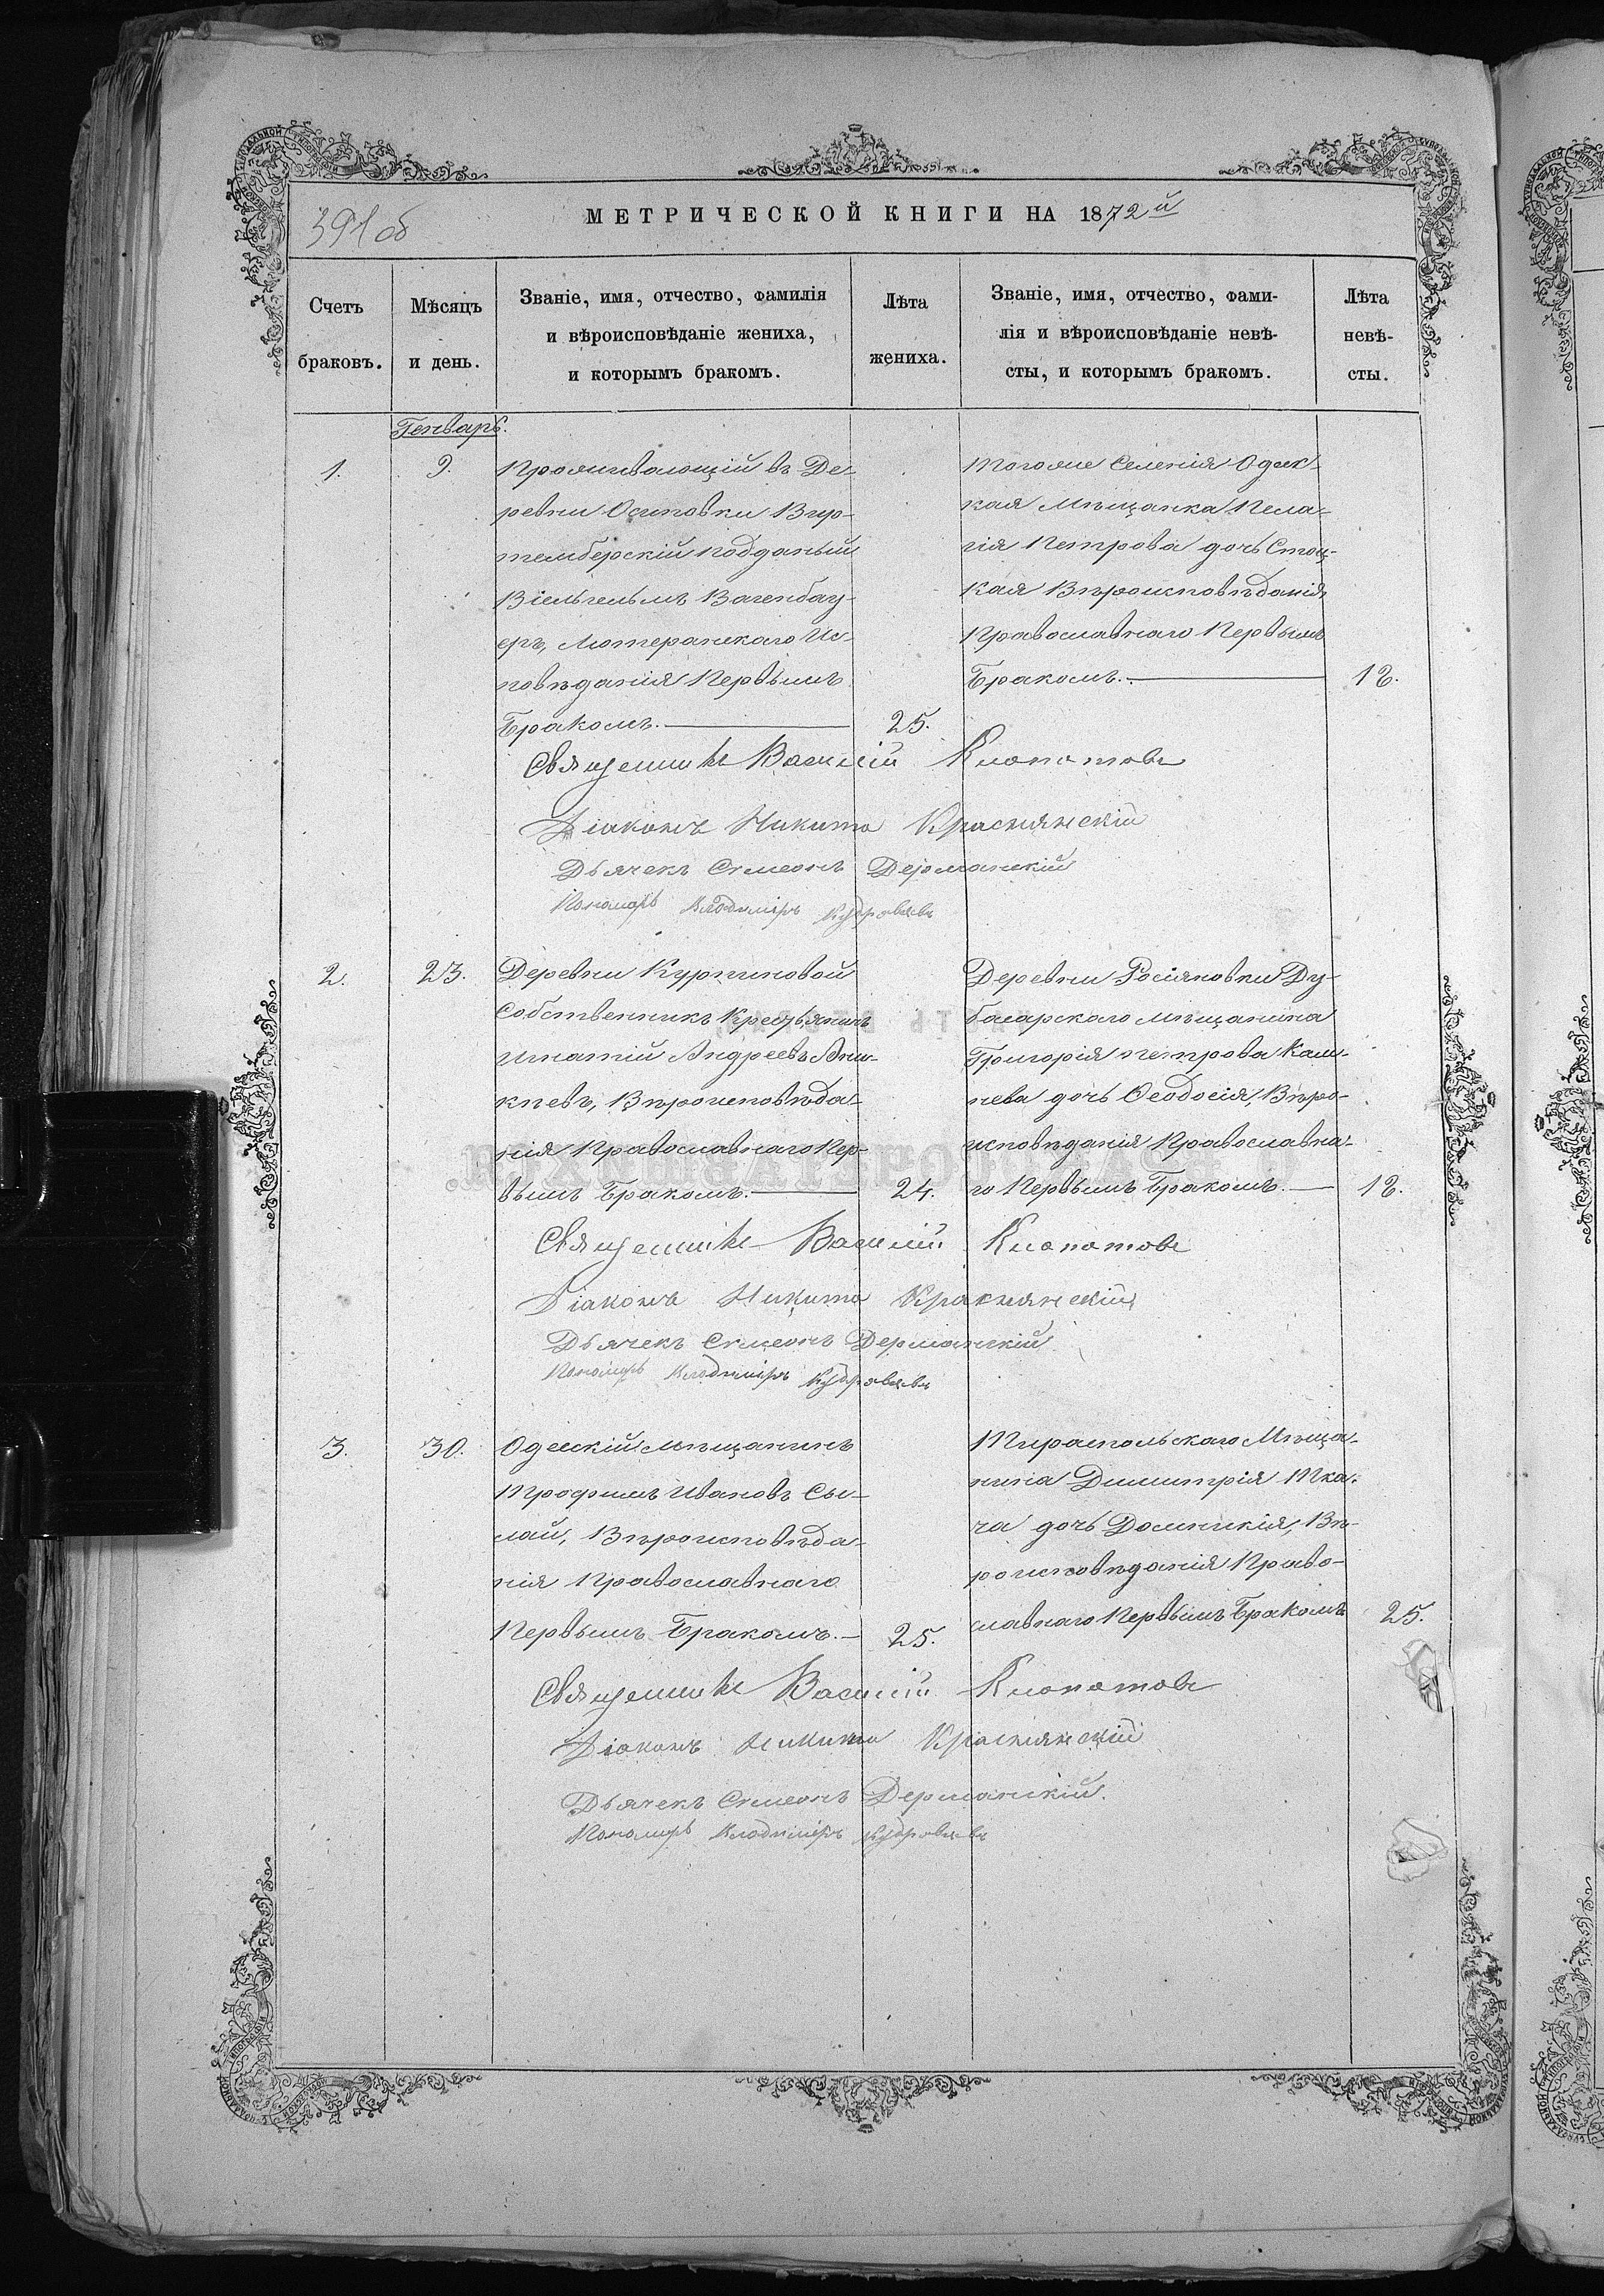 391об
МЕТРИЧЕСКОЙ КНИГИ НА 1872й
Счетъ
браковъ.
Мѣсяцъ
и день.
Званіе, имя, отчество, фамилія
и вѣроисповѣданіе жениха,
и которымъ бракомъ.
Лѣта
жениха.
Званіе, имя, отчество, фами-
лія и вѣроисповѣданіе невѣ-
сты, и которымъ бракомъ.
Лѣта
невѣ-
сты.
Генварь.
1.
9.
Проживающій въ Де-
ревни Осиповки Вир-
тембергскій подданый
Віельгельмъ Вагенбау-
еръ, Лютеранскаго Ис-
повѣданія Первымъ
Бракомъ.
25.
Тогоже Селенія Одес-
кая Мѣщанка Пела-
гія Петрова дочь
Вѣроисповѣданія
Православнаго Первымъ
Бракомъ.
18.
Священникъ Василій Клопотовъ
Діаконъ Никита Краснянскій
Дьячекъ Симеонъ Дерманскій
Пономарь Владиміръ
2.
23.
Деревни Курпиновой
Собственникъ Крестьянинъ
Игнатій Андреевъ Ани-
киевъ, Вѣроисповѣда-
нія Православнаго Пер-
вымъ Бракомъ.
24.
Деревни Росіяновки Ду-
басарскаго мѣщанина
Григорія петрова Кали-
нева дочь Ѳеодосія, Вѣро-
исповѣданія Православна-
го Первымъ Бракомъ.
18.
Священникъ Василій Клопотовъ
Діаконъ Никита Краснянскій
Дьячекъ Симеонъ Дерманскій
Пономарь Владиміръ
3.
30.
Одескій мѣщанинъ
Трофимъ Ивановъ Сы-
лай, Вѣроисповѣда-
нія Православнаго
Первымъ Бракомъ.
25.
Тираспольскаго Мѣща-
нина Димитрія Тка-
ча дочь Домникія, Вѣ-
роисповѣданія Право-
славнаго Первымъ Бракомъ
25.
Священникъ Василій Клопотовъ
Діаконъ Никита Краснянскій
Дьячекъ Симеонъ Дерманскій.
Пономарь Владиміръ